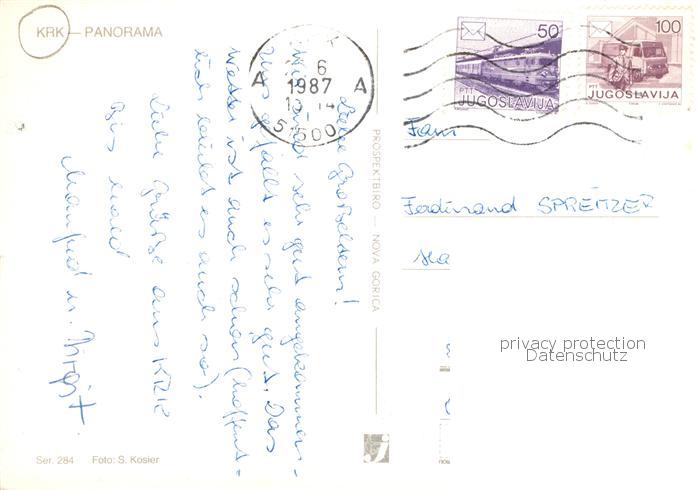 KRK — PANORAMA
Liebe Großeltern!
Wir sind sehr gut angekommen.
Uns gefällt es sehr gut. Das
Wetter ist auch schön (hoffent=
lich bleibt es auch so).
Liebe Grüße aus KRK
Bis bald
Manfred u. Birgit
Ser. 284 Foto: S. Kosier
PROSPEKTBIRO — NOVA GORICA
A 6 A
1987
51500
50
PTT
JUGOSLAVIJA
100
PTT
JUGOSLAVIJA
Fam
Ferdinand SPREMZER
privacy protection
Datenschutz